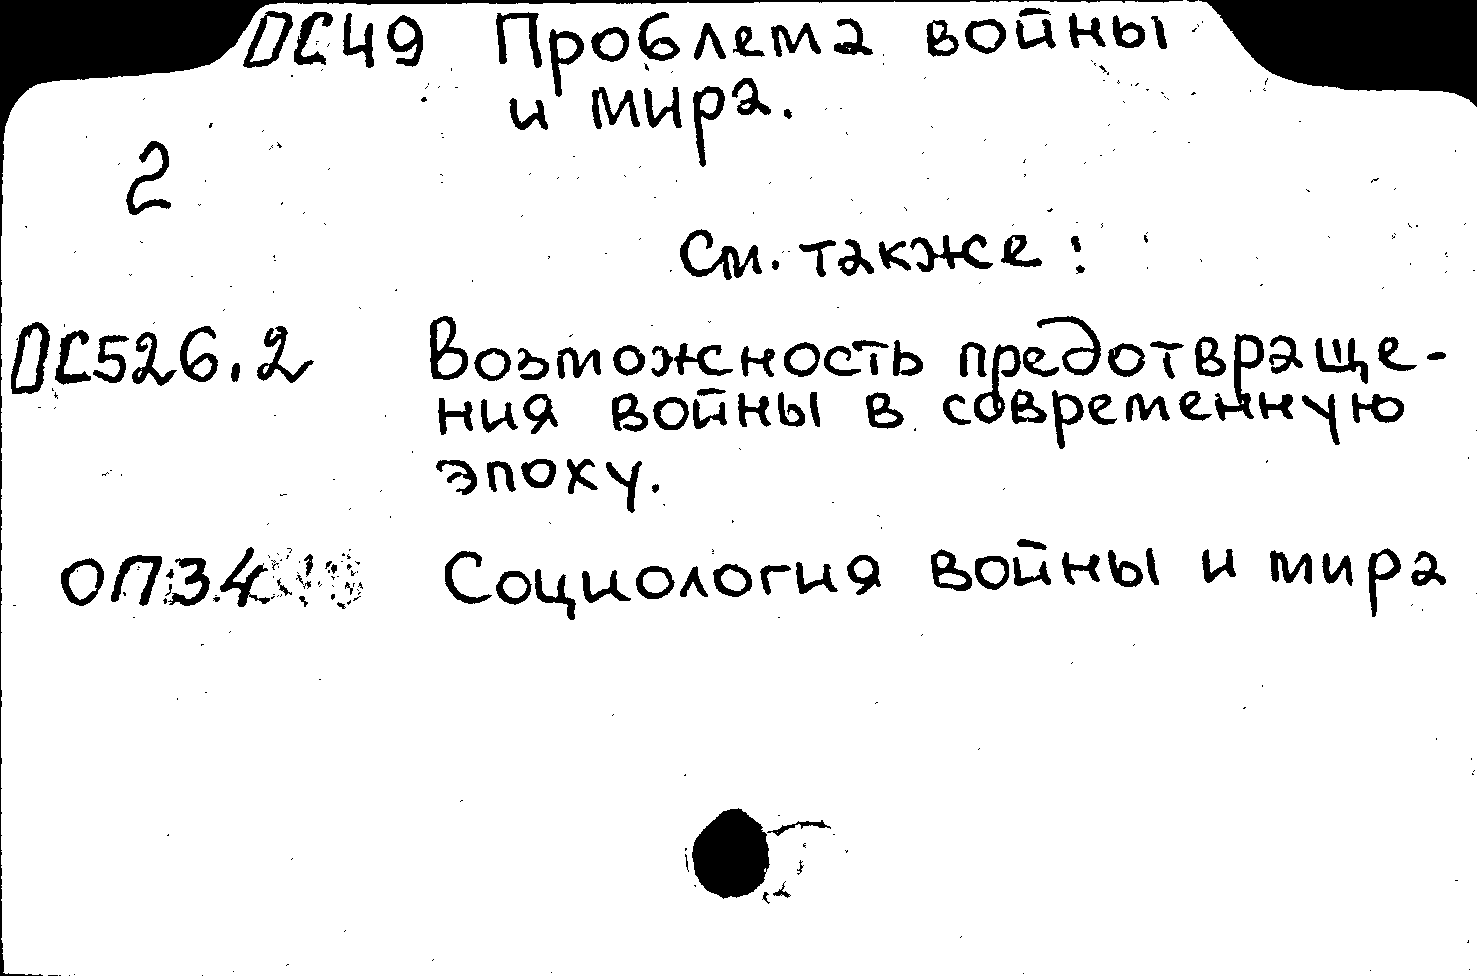 ОС49 Проблема войны
и мира.
2
См. также:
ОС526.2 Возможность предотвраще-
ния войны в современную
эпоху.
ОП34 Социология войны и мира